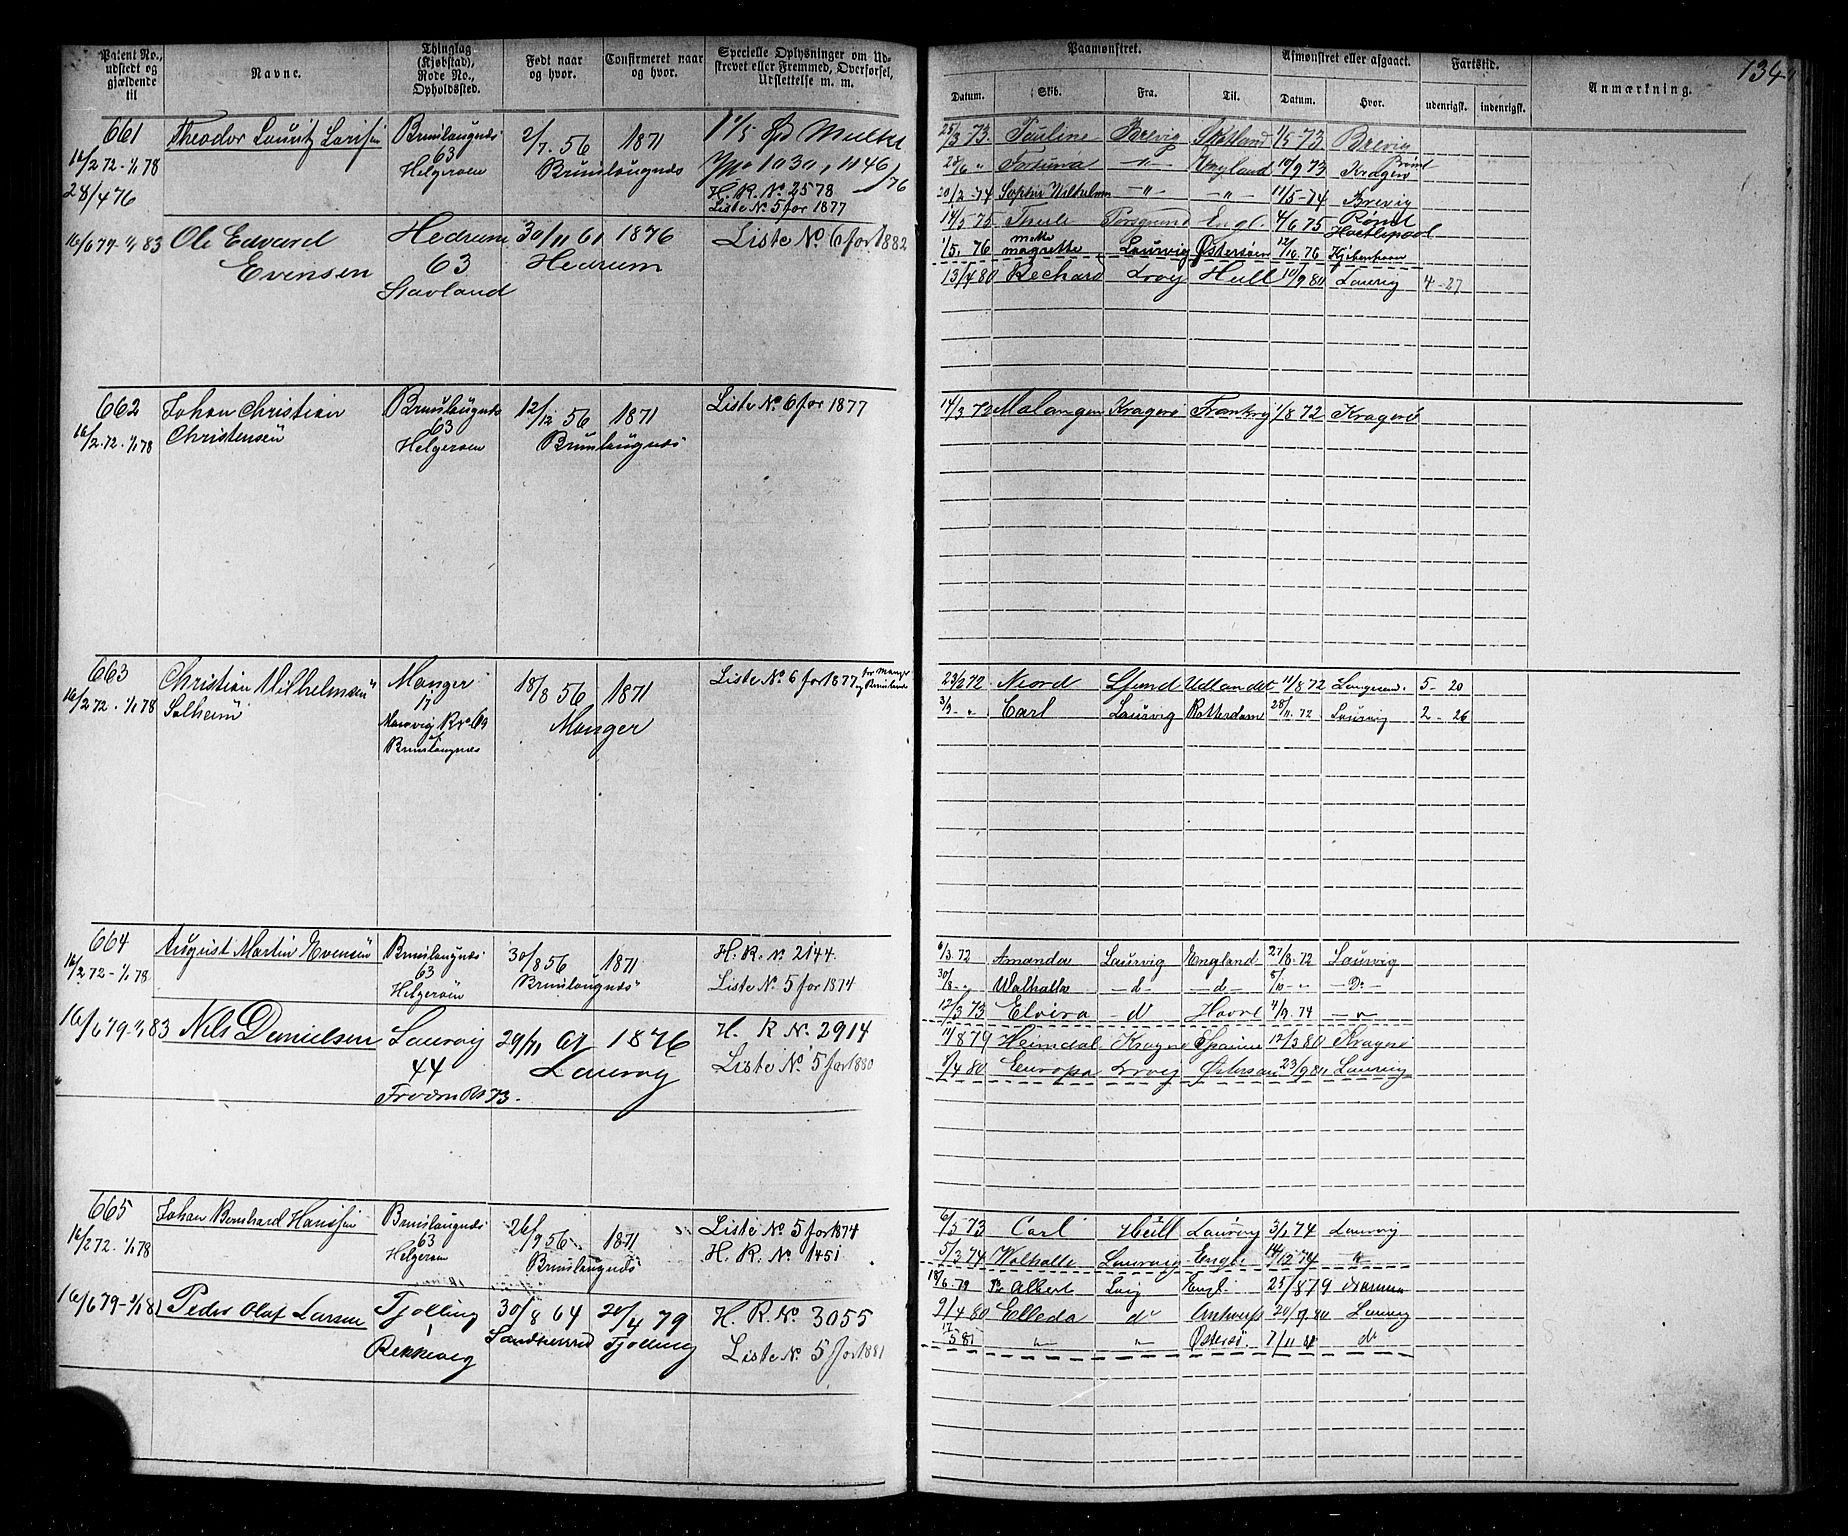 134
Patent No., udstedt og gjældende til
Navne.
Thinglag (Kjøbstad), Rode No., Opholdssted.
Født naar og hvor.
Confirmeret naar og hvor.
Specielle Oplysninger om Udskrevet eller Fremmed, Overførsel, Udslettelse m. m.
Paamønstret.
Afmønstret eller afgaaet.
Fartstid.
Anmærkning.
Datum. Skib. Fra. Til. Datum. Hvor. udenrigsk. indenrigsk.
661 Theodor Lauritz Brunlaugnæs 2/7 56 1871
16/2 72 - 1/1 78 63 Brunlaugnæs No 1030, 1146/76
28/4 76 Helgeroen H. R. No 2578
Liste No 5 for 1877
25/3 73. Pauline Brevig Skotland 1/5 73 Brevig
25/6 " Fortuna -"- England 10/9 73 Kragerø
20/2 - 74 -"- -"- 11/5 - 74 Brevig
14/3 75 Thule Porsgrund Engl. 4/6 75 Rømt
1/5. 76 Mette magrette Laurvig Østersøen 12/10. 76 Kjøbenhavn
16/6 79 - 1/1 83 Ole Edvard Evensen Hedrum 63 30/11 61 1876 Hedrum Liste No 6 for 1882
13/4 80 Rechard Lrvig Hull 10/9 80 Laurvig 4 - 27
662 Johan Christian Christensen Brunlaugnæs 12/12 56 1871 Liste No 6 for 1877
16/2. 72. - 1/1 78 63 Helgeroen Brunlaugnæs
14/3 72 Malangen Kragerø Frankrig 1/8 72 Kragerø
663 Christian Vilhelmsen Solheim Manger 17 18/8 56 1871 Manger Liste No 6 for 1877
16/2 72. - 1/1 78 Brunlaugnæs
23/2 72 Niord Udlandet 11/8 72 Langesund. 5 - 20
3/9 - " Carl Laurvig Rotterdam 28/11. 72 Laurvig 2 - 26
664 August Martin Evensen Brunlaugnæs 30/8 56 1871 H. R. No 2144.
16/2 72 - 1/1 78 63 Helgeroen Brunlaugnæs Liste No 5 for 1874
6/3. 72 Amanda Laurvig England 27/8. 72 Laurvig
30/8 - " Walhalla - d - - d - 5/10 - " - Do -
12/3 73 Elvira - d Havre 4/9. 74 - " -
16/6 79 - 1/1 83 Nils Danielsen Laurvig 44 29/11 61 1876 Laurvig H. R. No. 2914
Liste No 5 for 1880
11/8 79 Heimdal Kragerø Spanien 12/3 80 Kragerø
Europa Lrvig 23/9. 80 Laurvig
665 Johan Bernhard Hanssen Brunlaugnæs 26/9 56 1871 Liste No 5 for 1874
16/2 72. - 1/1 78 63 Helgeroen Brunlaugnæs H. R. No 1451
6/5 73 Carl Hull Laurvig 3/1 74 Laurvig
5/3 74 Walhalla Laurvig Engl. 14/12 74 "
16/6 79 Peder Olaf Larsen Tjølling 30/8 64 20/4 79 H. R. No 3055
Rekkevig Sandherred Tjølling Liste No. 5 for 1881
18/6 79 Pr Albert Lvig Engl. 25/8 79
9/4 80 Elleda do 20/9. 80 Laurvig
" " Østersø. do